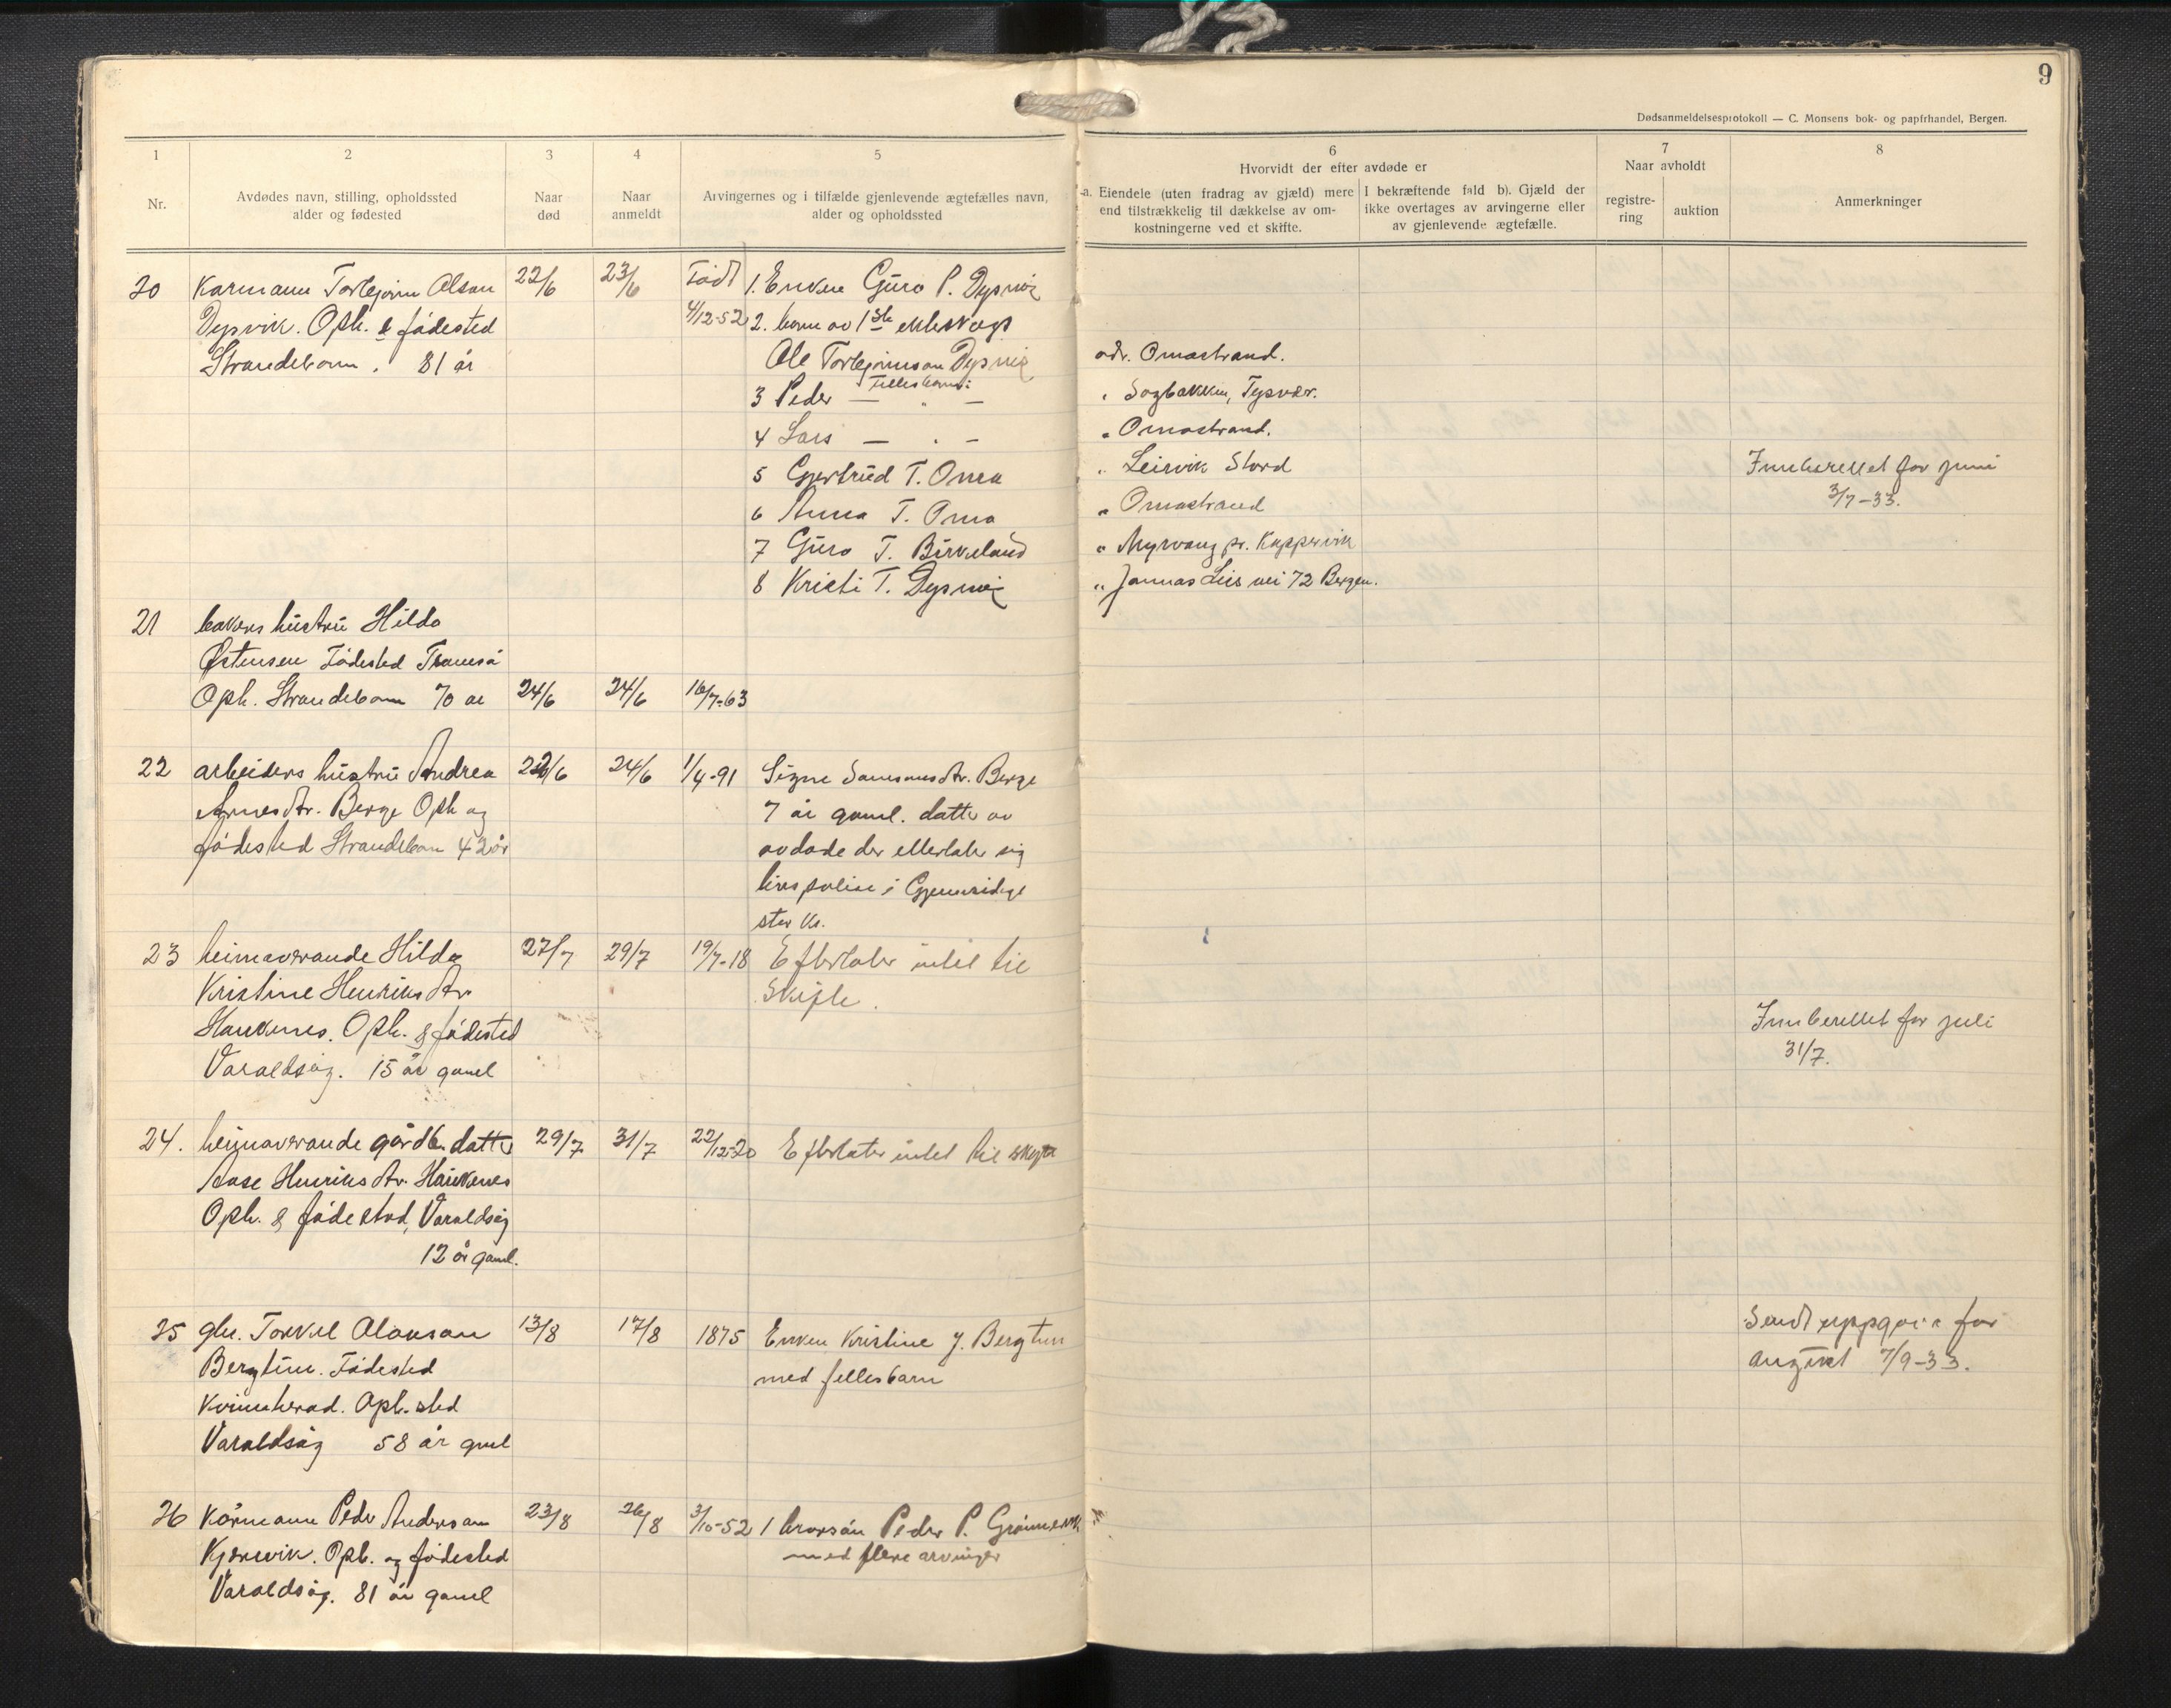 9
Dødsanmeldelsesprotokoll — C. Monsens bok- og papirhandel, Bergen.
1
2
3
4
5
6
7
8
Nr.
Avdødes navn, stilling, opholdssted
alder og fødested
Naar
død
Naar
anmeldt
Arvingernes og i tilfælde gjenlevende ægtefælles navn,
alder og opholdssted
Hvorvidt der efter avdøde er
a. Eiendele (uten fradrag av gjæld) mere
end tilstrækkelig til dækkelse av om-
kostningerne ved et skifte.
I bekræftende fald b). Gjæld der
ikke overtages av arvingerne eller
av gjenlevende ægtefælle.
Naar avholdt
registre-
ring
auktion
Anmerkninger
20 Kårmann Torbjørn Olson 22/6 23/6 Födt 1. Enken Guro P. Dysvik
Dysvik. Oph. & födested 4/12-52 2. barn av 1ste ekteskap
Strandebarm. 81 år Ole Torbjörnson Dysvik adr. Omastrand.
Fellesbarn:
3 Peder — " — " Sagbakken, Tysvær.
4 Lars — " — " Omastrand.
5 Gjertrud T. Oma " Leirvik Stord
Innberettet for juni
6 Anna T. Oma " Omastrand
3/7-33.
7 Guro T. Birkeland " Myrvang pr. Koppervik
8 Kristi T. Dysvik " Jonnas Lies vei 72 Bergen.
21 bakers hustru Hilda
Østensen Födested Tromsö
Oph. Strandebarm 70 år 24/6 24/6 16/7-63
22 arbeiders hustru Andrea 22/6 24/6 1/4-91 Signe Samsonsdtr. Berge
Arnesdtr. Berge Oph og 7 år gaml. datter av
födested Strandebarm 42 år avdöde der etterlater sig
livspolise i Gjensidige
stor kr.
23 heimaverande Hilda 27/7 29/7 19/7-18 Efterlater intet til
Kristine Henriksdtr. Skifte.
Haukenes. Oph. & födested
Innberettet for juli
Varaldsöy. 15 år gamel
31/7.
24. heimaverande gårdb. datter 29/7 31/7 22/12-20 Efterlater intet til skifte
Aase Henriksdtr. Haukenes
Oph. & födestad, Varaldsöy
12 år gaml.
25 gbr. Torkel Olavson 13/8 17/8 1875 Enken Kristine J. Bergtun
Sendt uppgave for
Bergtun. Födested med fellesbarn
august 7/9-33.
Kvinnherad. Oph. sted
Varaldsöy 58 år gml
26 Kårmann Peder Anderson 23/8 26/8 3/10-52 1 brorsön Peder P.
Kjerevik. Oph. og födested med flere arvinger
Varaldsöy. 81 år gamel